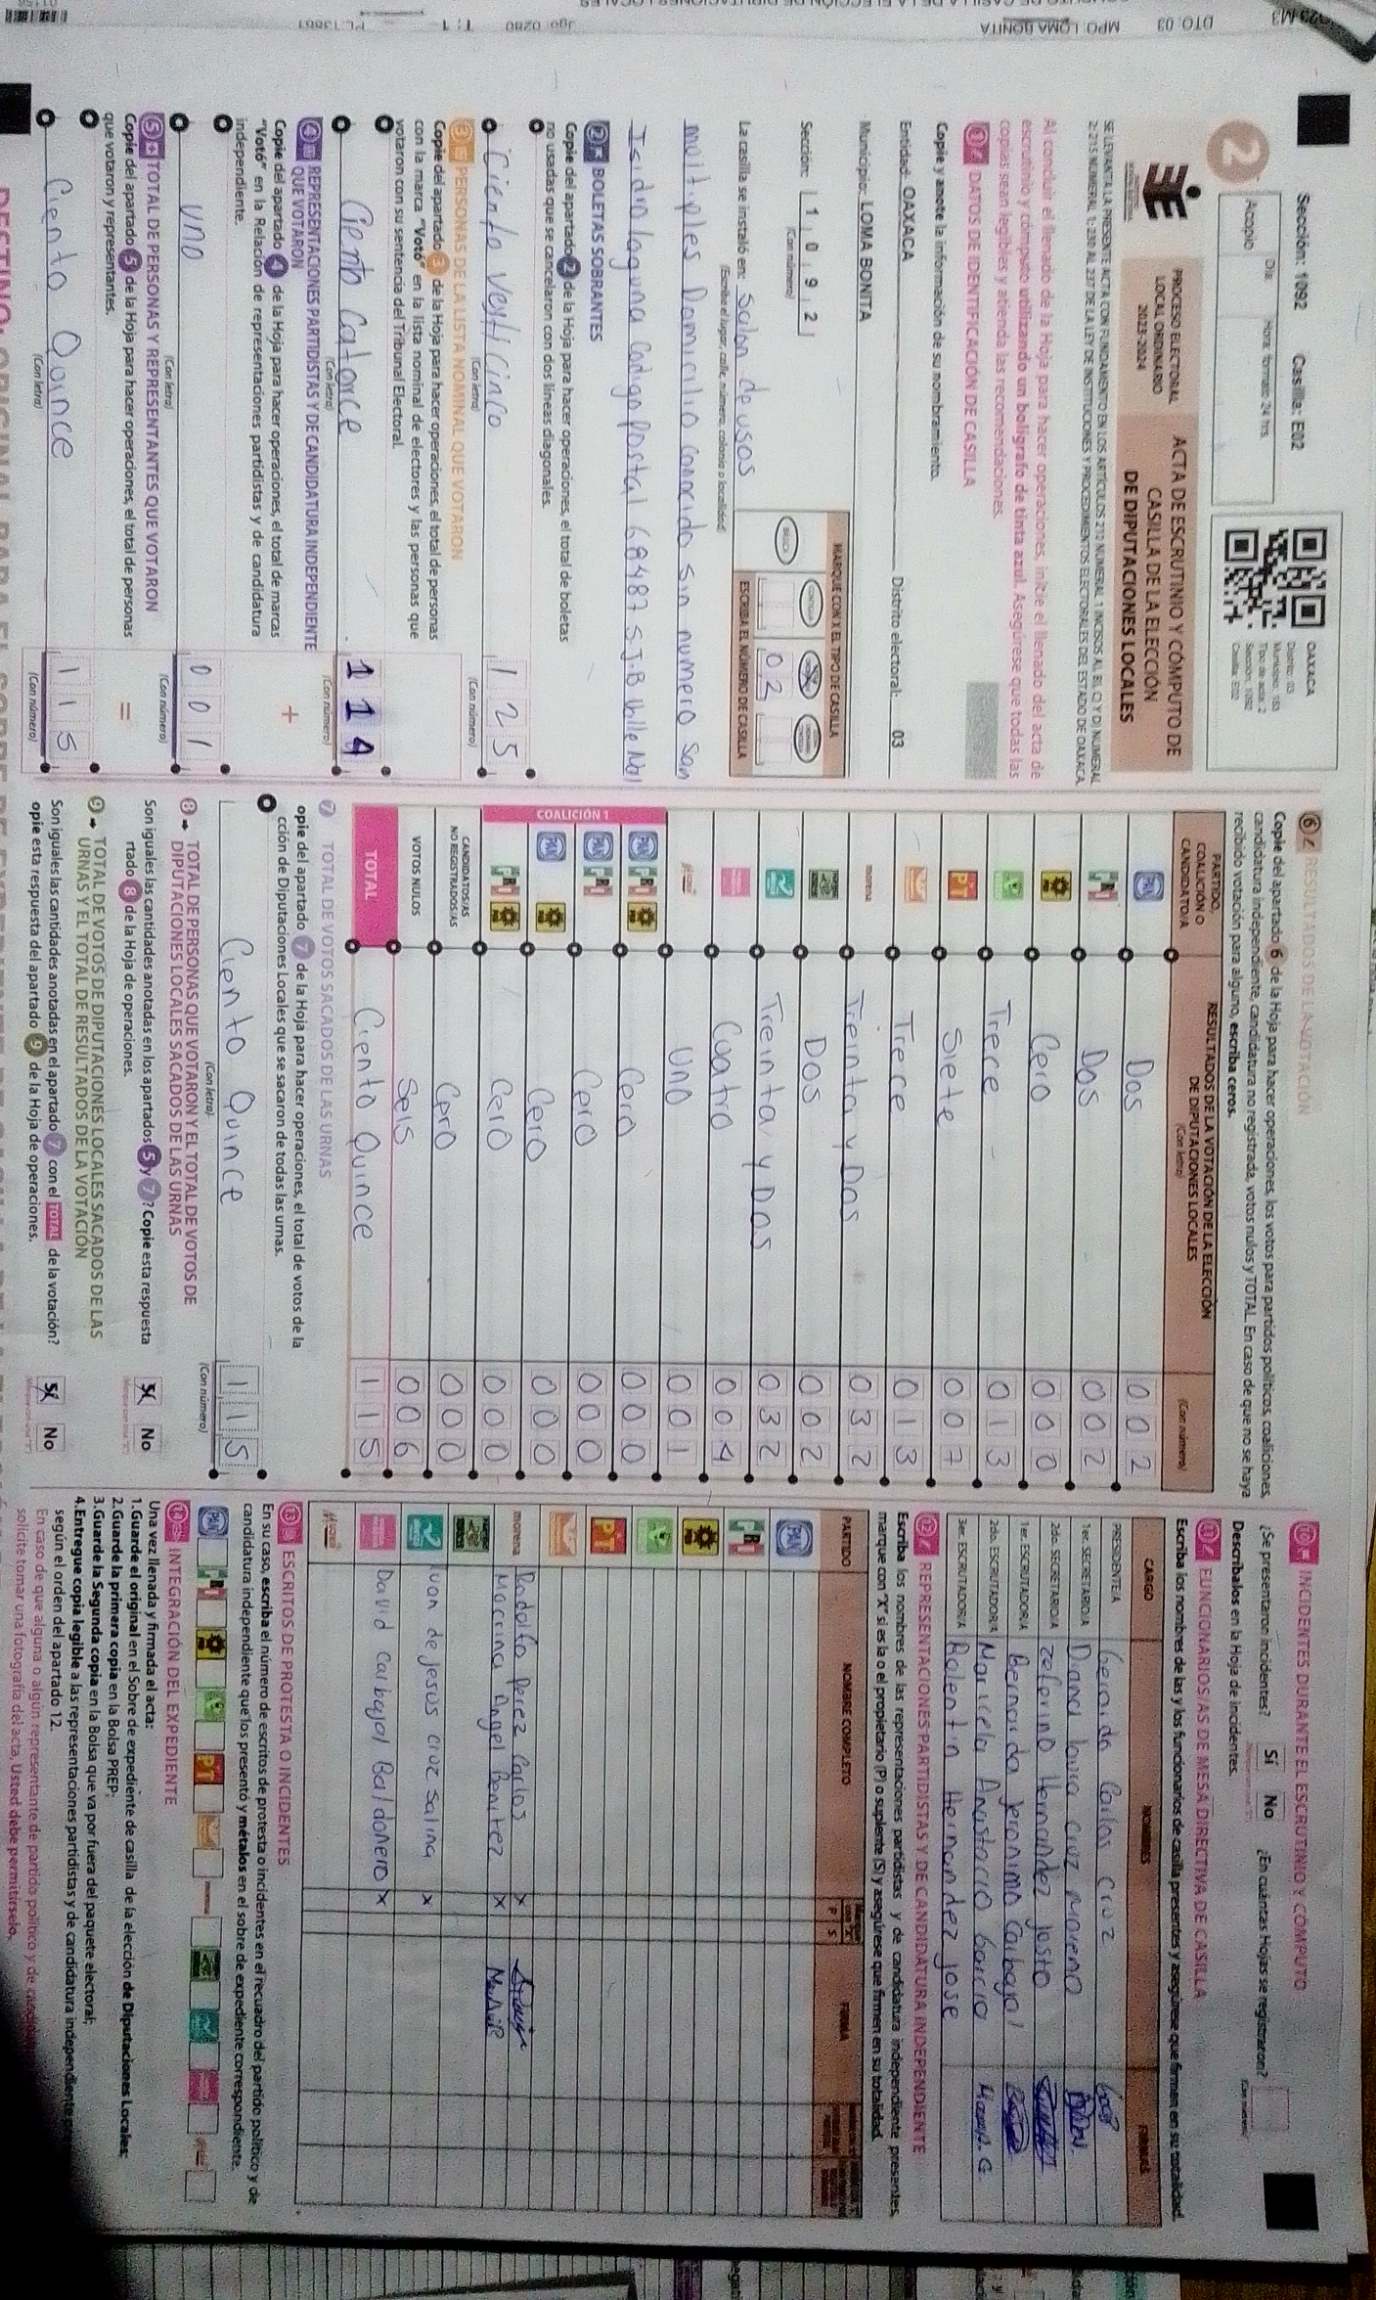 Sección: 1092 Casilla: E02
2
Acopio
Día
Hora: formato 24 hrs.
OAXACA
Distrito: 03
Municipio: 183
Tipo de acta: 2
Sección: 1092
Casilla: E02
PROCESO ELECTORAL
LOCAL ORDINARIO
2023-2024
ACTA DE ESCRUTINIO Y CÓMPUTO DE
CASILLA DE LA ELECCIÓN
DE DIPUTACIONES LOCALES
Al concluir el llenado de la Hoja para hacer operaciones, inicie el llenado del acta de
escrutinio y cómputo utilizando un bolígrafo de tinta azul. Asegúrese que todas las
copias sean legibles y atienda las recomendaciones.
1 DATOS DE IDENTIFICACIÓN DE CASILLA
Copie y anote la información de su nombramiento.
Entidad: OAXACA Distrito electoral: 03
Municipio: LOMA BONITA
Sección: 1 0 9 2
(Con número)
MARQUE CON X EL TIPO DE CASILLA
0 2
ESCRIBA EL NÚMERO DE CASILLA
La casilla se instaló en: Salon de usos
(Escriba el lugar, calle, número, colonia o localidad)
multiples Domicilio conocido sin numero San
Isidro laguna Codigo Postal 68487 S.J.B Valle Nal
2 BOLETAS SOBRANTES
Copie del apartado 2 de la Hoja para hacer operaciones, el total de boletas
no usadas que se cancelaron con dos líneas diagonales.
Ciento Veiticinco 1 2 5
(Con letra) (Con número)
3 PERSONAS DE LA LISTA NOMINAL QUE VOTARON
Copie del apartado 3 de la Hoja para hacer operaciones, el total de personas
con la marca "Votó" en la lista nominal de electores y las personas que
votaron con su sentencia del Tribunal Electoral.
Ciento Catorce 1 1 4
(Con letra) (Con número)
4 REPRESENTACIONES PARTIDISTAS Y DE CANDIDATURA INDEPENDIENTE
QUE VOTARON
Copie del apartado 4 de la Hoja para hacer operaciones, el total de marcas
"Votó" en la Relación de representaciones partidistas y de candidatura
independiente.
+
uno 0 0 1
(Con letra) (Con número)
5 TOTAL DE PERSONAS Y REPRESENTANTES QUE VOTARON
Copie del apartado 5 de la Hoja para hacer operaciones, el total de personas
que votaron y representantes.
=
Ciento Quince 1 1 5
(Con letra) (Con número)
6 RESULTADOS DE LA VOTACIÓN
Copie del apartado 6 de la Hoja para hacer operaciones, los votos para partidos políticos, coaliciones,
candidatura independiente, candidatura no registrada, votos nulos y TOTAL. En caso de que no se haya
recibido votación para alguno, escriba ceros.
PARTIDO, COALICIÓN O CANDIDATO/A
RESULTADOS DE LA VOTACIÓN DE LA ELECCIÓN
DE DIPUTACIONES LOCALES
(Con letra) (Con número)
PAN Dos 0 0 2
PRI Dos 0 0 2
PRD Cero 0 0 0
Trece 0 1 3
PT Siete 0 0 7
Trece 0 1 3
morena Treinta y Dos 0 3 2
Dos 0 0 2
Treinta y Dos 0 3 2
Coatro 0 0 4
Uno 0 0 1
COALICIÓN 1
PAN PRI PRD Cero 0 0 0
PAN PRI Cero 0 0 0
PAN PRD Cero 0 0 0
PRI PRD Cero 0 0 0
CANDIDATOS/AS
NO REGISTRADOS/AS Cero 0 0 0
VOTOS NULOS Seis 0 0 6
TOTAL Ciento Quince 1 1 5
7 TOTAL DE VOTOS SACADOS DE LAS URNAS
opie del apartado 7 de la Hoja para hacer operaciones, el total de votos de la
cción de Diputaciones Locales que se sacaron de todas las urnas.
Ciento Quince 1 1 5
(Con letra) (Con número)
8 TOTAL DE PERSONAS QUE VOTARON Y EL TOTAL DE VOTOS DE
DIPUTACIONES LOCALES SACADOS DE LAS URNAS
Son iguales las cantidades anotadas en los apartados 5 y 7? Copie esta respuesta
rtado 8 de la Hoja de operaciones.
Sí No
9 TOTAL DE VOTOS DE DIPUTACIONES LOCALES SACADOS DE LAS
URNAS Y EL TOTAL DE RESULTADOS DE LA VOTACIÓN
Son iguales las cantidades anotadas en el apartado 7 con el TOTAL de la votación?
opie esta respuesta del apartado 9 de la Hoja de operaciones.
Sí No
10 INCIDENTES DURANTE EL ESCRUTINIO Y CÓMPUTO
¿Se presentaron incidentes? Sí No ¿En cuántas Hojas se registraron?
Descríbalos en la Hoja de incidentes.
11 FUNCIONARIOS/AS DE MESA DIRECTIVA DE CASILLA
Escriba los nombres de las y los funcionarios de casilla presentes y asegúrese que firmen en su totalidad.
CARGO NOMBRES FIRMAS
PRESIDENTE/A Gerardo Carlos Cruz
1er. SECRETARIO/A Diana laura cruz moreno
2do. SECRETARIO/A zeferino Hernandez josto
1er. ESCRUTADOR/A Bernarda jeronimo Carbajal
2do. ESCRUTADOR/A Maricela Anastacio Garcia
3er. ESCRUTADOR/A Balentin Hernandez jose
12 REPRESENTACIONES PARTIDISTAS Y DE CANDIDATURA INDEPENDIENTE
Escriba los nombres de las representaciones partidistas y de candidatura independiente presentes,
marque con "X" si es la o el propietario (P) o suplente (S) y asegúrese que firmen en su totalidad.
PARTIDO NOMBRE COMPLETO P S FIRMA
PAN
PRI
PRD
PT
morena Rodolfo Perez Carlos X
Macrina Angel Benitez X
Juan de jesus cruz Salina X
David carbajal Baldonero X
13 ESCRITOS DE PROTESTA O INCIDENTES
En su caso, escriba el número de escritos de protesta o incidentes en el recuadro del partido político y de
candidatura independiente que los presentó y métalos en el sobre de expediente correspondiente.
PAN PRI PT morena
14 INTEGRACIÓN DEL EXPEDIENTE
Una vez llenada y firmada el acta:
1.Guarde el original en el Sobre de expediente de casilla de la elección de Diputaciones Locales;
2.Guarde la primera copia en la Bolsa PREP;
3.Guarde la Segunda copia en la Bolsa que va por fuera del paquete electoral;
4.Entregue copia legible a las representaciones partidistas y de candidatura independiente
según el orden del apartado 12.
En caso de que alguna o algún representante de partido político y de
solicite tomar una fotografía del acta, Usted debe permitírselo.
DTO 03 MPO LOMA BONITA